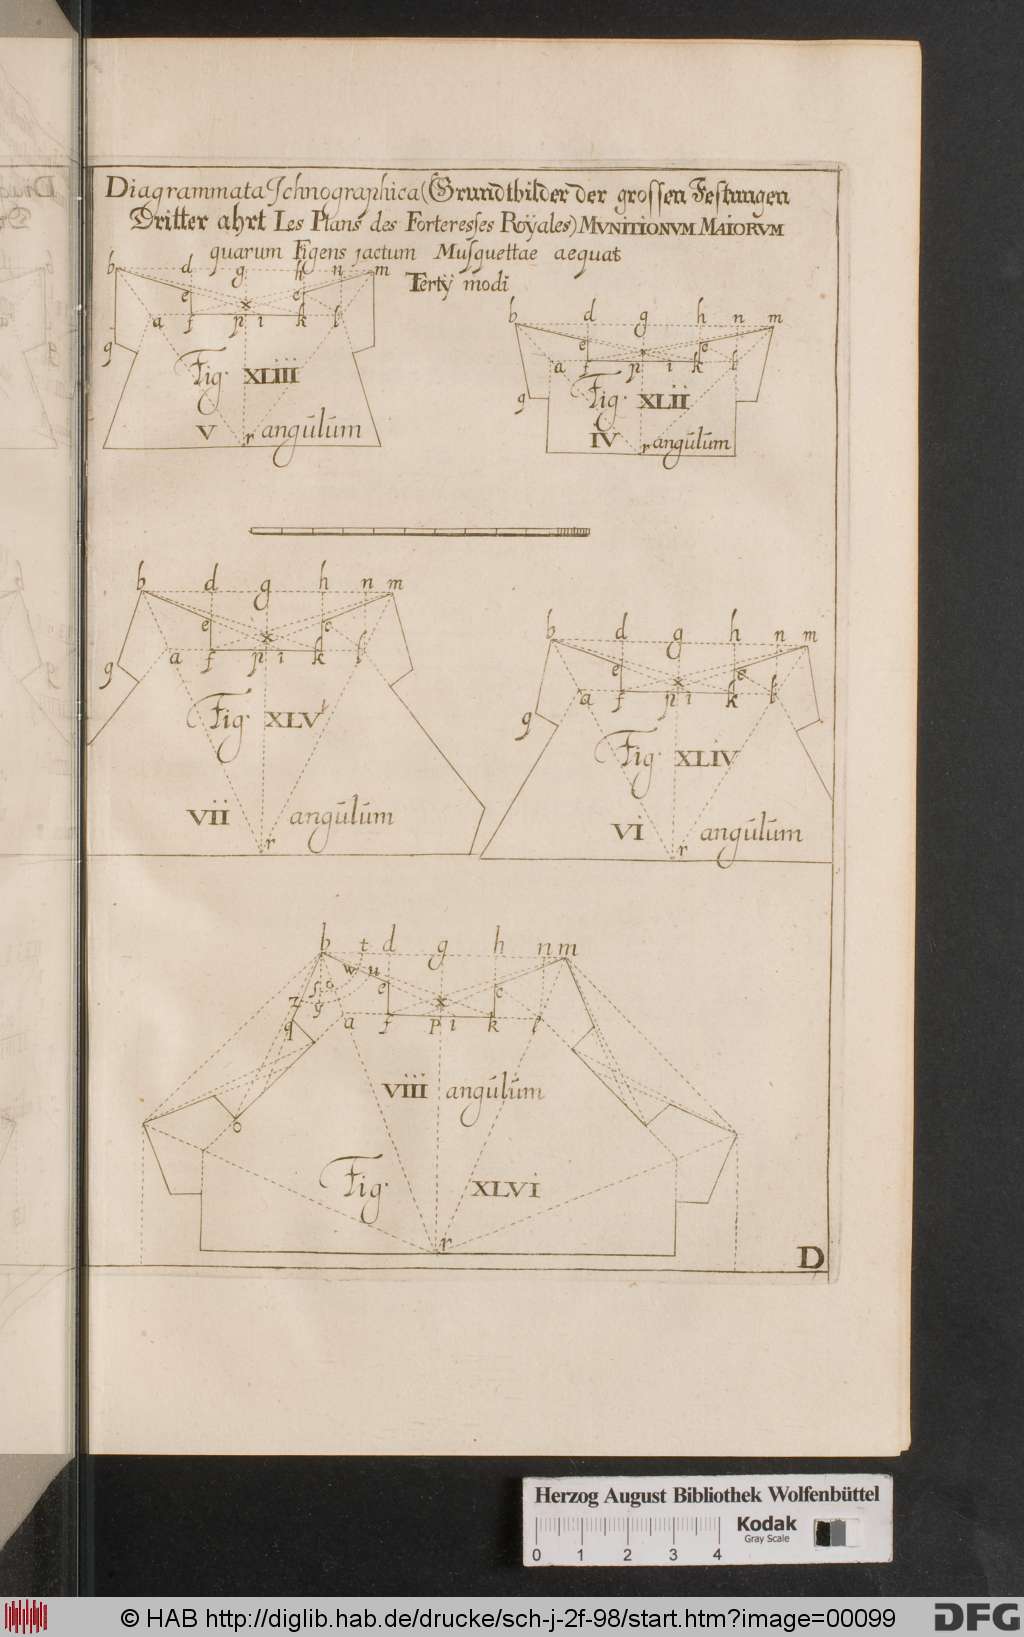 Diagrammata Ichnographica (Grundtbilder der grossen Festungen
Dritter ahrt Les Plans des Forteresses Roÿales) MVNITIONVM MAIORVM
quarum Figens jactum Musquettae aequat
Tertÿ modi
b d g h n m
e c
x
a f p i k l
q
Fig. XLIII
V r angulum
b d g h n m
e c
x
a f p i k l
q
Fig. XLII
IV r angulum
b d g h n m
e c
x
a f p i k l
q
Fig. XLV
VII angulum
r
b d g h n m
e c
x
a f p i k l
q
Fig. XLIV
VI angulum
r
b t d g h n m
w u
s o e c
z y x
q a f p i k l
VIII angulum
o
Fig. XLVI
r
D
Herzog August Bibliothek Wolfenbüttel
Kodak
Gray Scale
0 1 2 3 4
© HAB http://diglib.hab.de/drucke/sch-j-2f-98/start.htm?image=00099
DFG